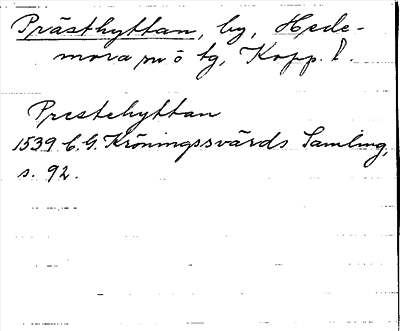 Prästhyttan, by, Hede-
mora sn o tg, Kopp. l.
Prestehyttan
1539 C. G. Kröningssvärds Samling,
s. 92.